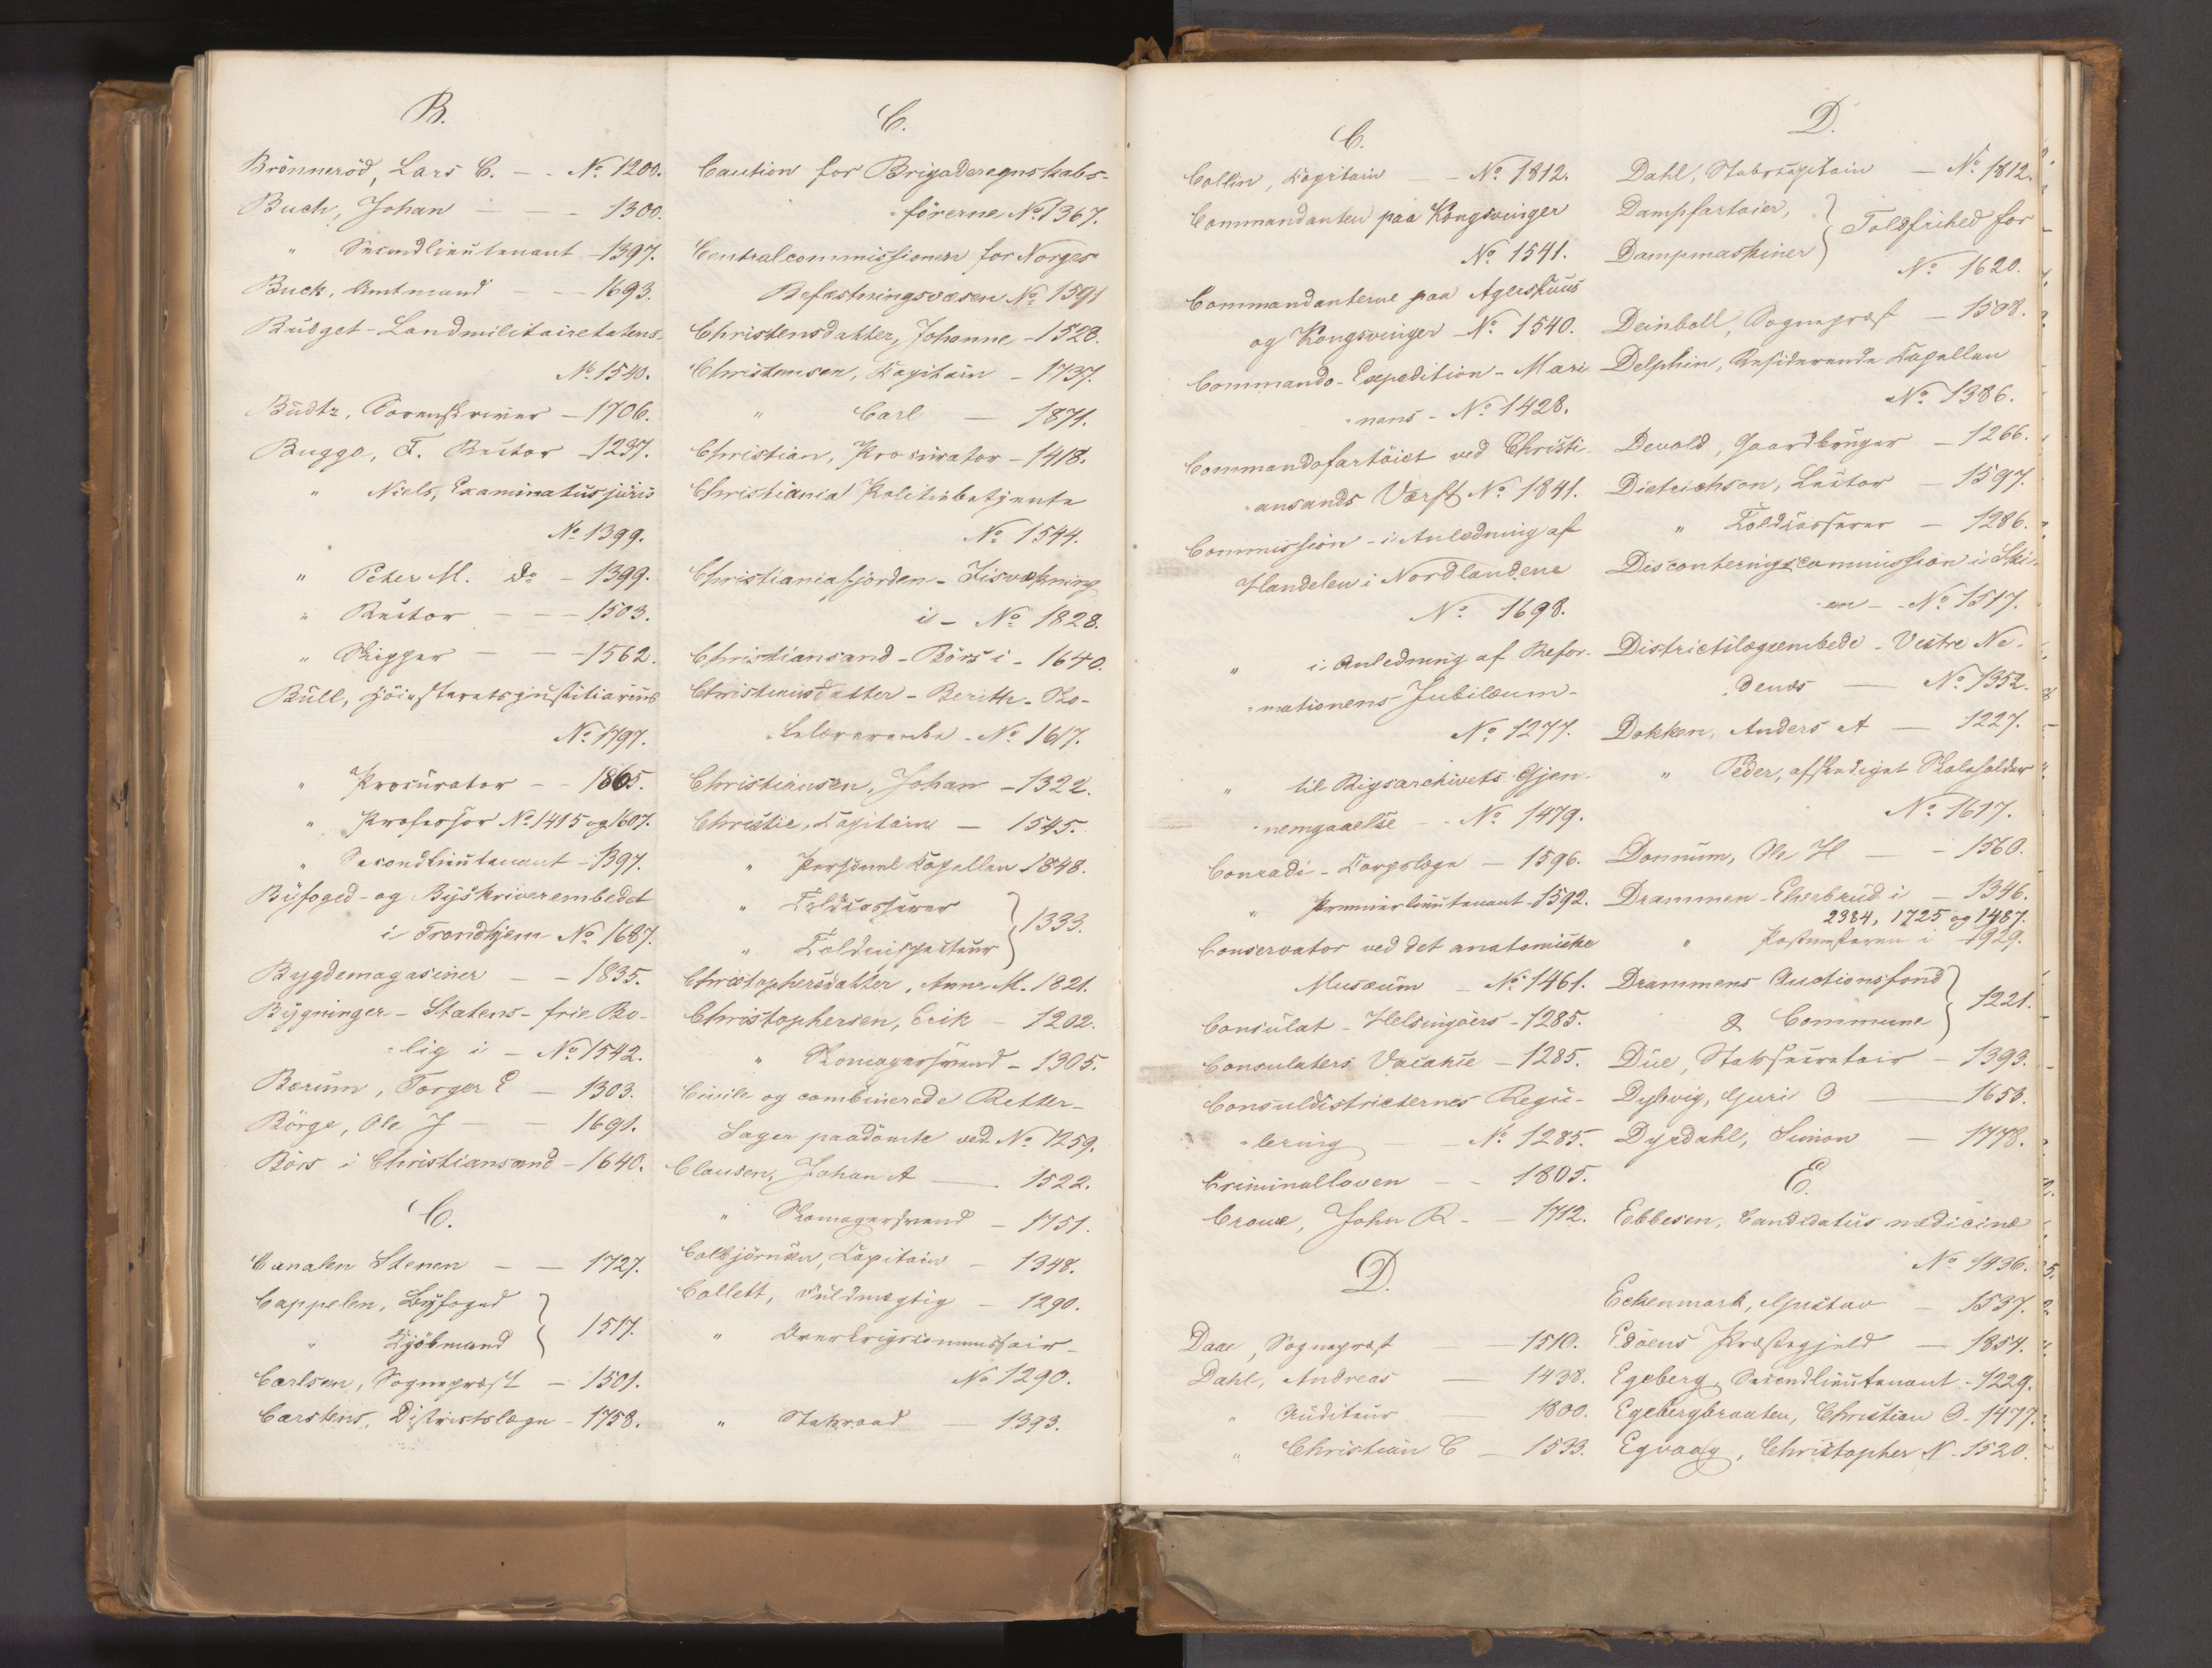 B.
Brönneröd, Lars C. — - No 1200.
Buch, Johan — — - 1300.
" Secondlieutenant - 1397.
Buck, Amtmand — — 1693.
Budget - Landmilitairetatens-
No 1540.
Budtz, Sorenskriver — 1706.
Bugge, F. Rector - 1237.
" Niels, Examinatus juris
No 1399.
" Peter M. do - 1399.
" Rector — — 1503.
" Skipper — — 1562.
Bull, Höiesteretsjustitiarius
No 1797.
" Procurator - - 1865.
" Professor No 1415 og 1607.
" Secondlieutenant - 1397.
Byfoged- og Byskriverembedet
i Trondhjem No 1687.
Bygdemagasiner — — 1835.
Bygninger - Statens - frie Bo-
-lig i - No 1542.
Bærum, Torger E — 1303.
Börge, Ole J — — 1691.
Börs i Christiansand - 1640.
C.
Canalen Stenen — — 1727.
Cappelen, Byfoged } 1517.
" Kjöbmand
Carlsen, Sognepræst — 1501.
Carstens, Districtslæge - 1758.
C.
Caution for Brigaderegnskabs-
-förerne No 1367.
Centralcommissionen for Norges
Befæstningsvæsen No 1591
Christensdatter, Johanne - 1528.
Christensen, Capitain - 1737.
" Carl — 1871.
Christian, Procurator - 1418.
Christiania Politiebetjente
No 1544.
Christianiafjorden - Iisvækning
i - No 1828.
Christiansand - Börs i - 1640.
Christiansdatter - Berith - Ko-
-leraenke - No 1617.
Christiansen, Johan - 1322.
Christie, Capitain — 1545.
" Personel Capellan 1848.
" Toldcasserer } 1333.
" Toldinspecteur
Christophersdatter, Anne M. 1821.
Christophersen, Erik - 1202.
" Skomagersvend - 1305.
Civile og combinerede Retter-
Sager paadömte ved No 1259.
Clausen, Johan A — 1522.
" Skomagersvend - 1751.
Colbjörnsen, Capitain - 1348.
Collett, Fuldmægtig - 1290.
" Overkrigscommissair-
No 1290.
" Statsraad — 1393.
C.
Collin, Capitain — - No 1812.
Commandanten paa Kongsvinger
No 1541.
Commandanterne paa Agershuus
og Kongsvinger - No 1540.
Commando-Expedition - Mari
-nens - No 1428.
Commandofartöiet ved Christi-
-ansands Værft No 1841.
Commission - i Anledning af
Handelen i Nordlandene
No 1698.
" i Anledning af Refor-
-mationens Jubilæum-
No 1277.
" til Rigsarchivets Gjen-
-nemgaaelse - - No 1479.
Conradi - Corpslæge — 1596.
" Premierlieutenant - 1592.
Conservator ved det anatomiske
Musæum - No 1461.
Consulat - Helsingöers - 1285.
Consulaters Vacance - 1285.
Consuldistricternes Regu-
-lering — No 1285.
Criminalloven - - 1805.
Crowe, John R - - 1712.
D.
Daae, Sognepræst — 1510.
Dahl, Andreas — 1438.
" Auditeur 1800.
" Christian C — 1533.
D.
Dahl, Stabscapitain — No 1812.
Dampfartöier, } Toldfrihed for
Dampmaskiner
No 1620.
Deinboll, Sognepræst — 1598.
Delphin, Residerende Capellan
No 1386.
Devold, Gaardbruger — 1266.
Dietrichson, Lector — 1597.
" Toldcasserer — 1286.
Disconteringscommission i Ski-
-en - - No 1517.
Districtslægeembede - Vestre Ne-
-denæs — No 1352.
Dokken, Anders A — 1227.
" Peder, afskediget Skoleholder
No 1617.
Donnum, Ole H — - 1560.
Drammen - Elvebrud i — 1346.
2384, 1725 og 1487.
" Postmesteren i - 1929.
Drammens Auctionsfond } 1221.
" & Commune
Due, Statssecretair - 1393.
Dybvig, Guri O — 1653.
Dyrdahl, Simon — 1778.
E.
Ebbesen, Candidatus medicinæ
No 1436.
Eckenmark, Gustav — 1537.
Edöens Præstegjeld — 1854.
Egeberg, Secondlieutenant - 1229.
Egebergbraaten, Christian O - 1477.
Egvaag, Christopher N - 1520.